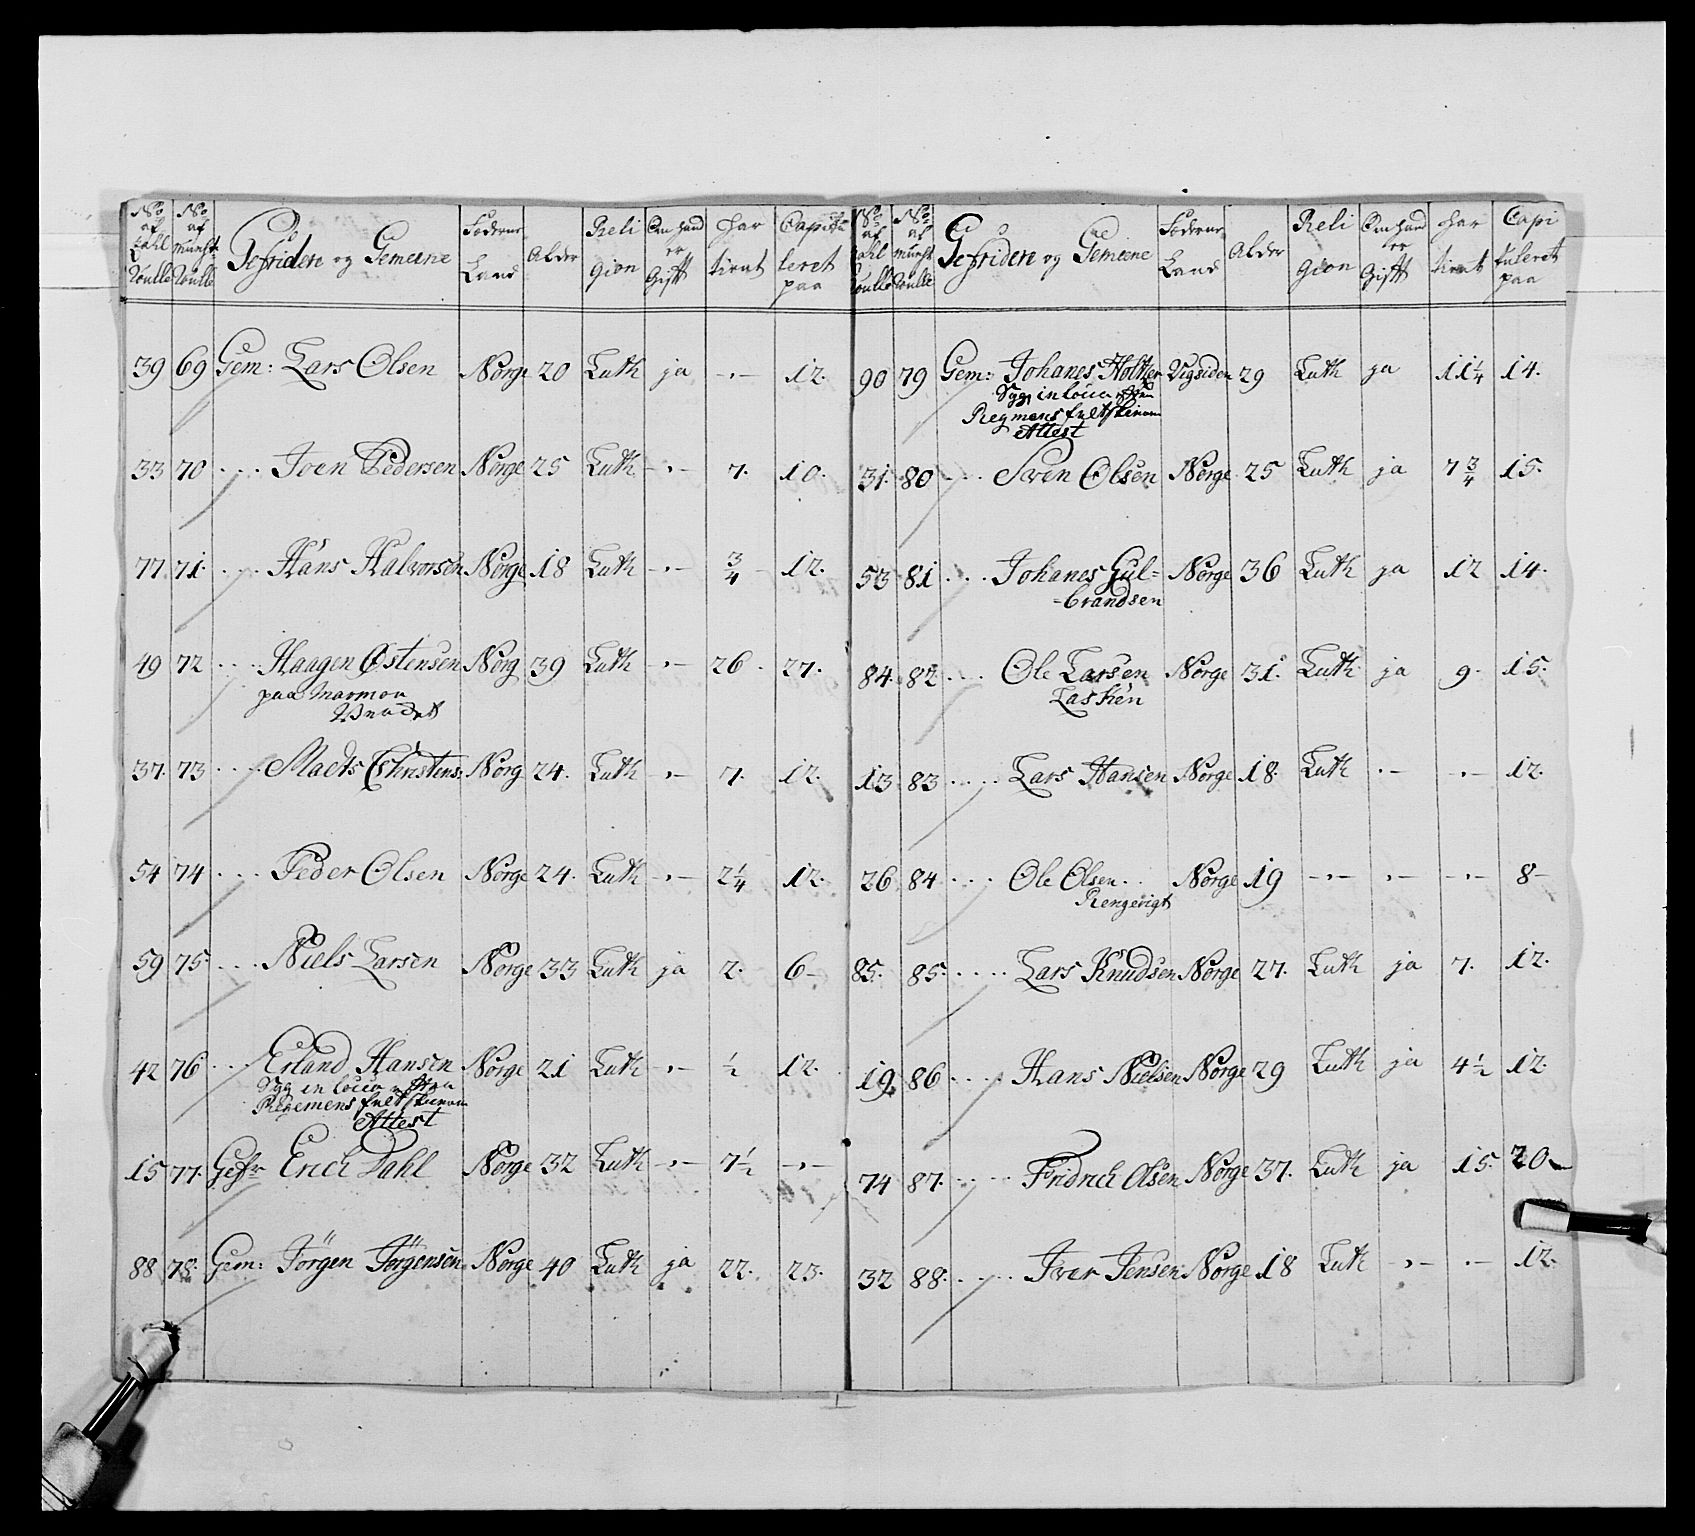 No af Tahl Roulle | No af Munst Roulle | Gefridere og Gemeene | Føderne Land | Alder | Religion | Om hand er Gifft | har tient | Capituleret paa
39 | 69 | Gem: Lars Olsen | Norge | 20 | Luth | ja | -,- | 12.
33 | 70 | .... Iven Pedersen | Norge | 25 | Luth | -,- | 7. | 10.
77 | 71. | .... Hans Halvorsen | Norge | 18 | Luth | -,- | 3/4 | 12.
49 | 72 | .... Haagen Østensen | Norg | 39 | Luth | -,- | 26 | 27.
paa Marmor
Brudet
37. | 73 | .... Madts Christens: | Norg | 24. | Luth | -,- | 7. | 12.
54 | 74 | .... Peder Olsen | Norge | 24. | Luth | -,- | 2 1/4 | 12.
59 | 75. | .... Niels Larsen | Norge | 33 | Luth | ja | 2. | 6-
42 | 76 | .... Erland Hansen | Norge | 21 | Luth | -,- | 1/2 | 12.
Syg in loco efter
Regemens feltskierem
Attest
15 | 77. | Gefr Erich Dahl | Norge | 32 | Luth | -,- | 7 1/2 | -,-
88 | 78. | Gem: Jörgen Jörgensen | Norge | 40 | Luth | ja | 22. | 23.
No af Tahl Roulle | No af Munst Roulle | Gefridere og Gemeene | Føderne Land | Alder | Religion | Om hand er Gifft | har tient | Capituleret paa
90 | 79 | Gem: Johanes Holther | Vigsiden | 29 | Luth | ja | 11 1/4 | 14.
Syg in loco efter
Regmens feltskierem
Attest
31. | 80 | .... Sven Olsen | Norge | 25 | Luth | ja | 7 3/4 | 15.
53 | 81. | .... Johanes Gul=
=brandsen | Norge | 36 | Luth | ja | 12 | 14.
84. | 82 | .... Ole Larsen | Norge | 31. | Luth | ja | 9- | 15.
Lasken
13 | 83 | .... Lars Hansen | Norge | 18. | Luth | .- | -,- | 12.
26 | 84 | .... Ole Olsen.. | Norge | 19 | -,- | -,- | -,- | 8-
Rengevigt
85. | 85. | .... Lars Knudsen | Norge | 27. | Luth | ja | 7. | 12.
19. | 86 | .... Hans Nielsen | Norge | 29 | Luth | ja | 4 1/2 | 12.
74 | 87. | .... Fridrich Olsen | Norge | 37. | Luth | ja | 15. | 20
32 | 88. | .... Iver Jensen | Norge | 18 | Luth | -,- | .- | 12.